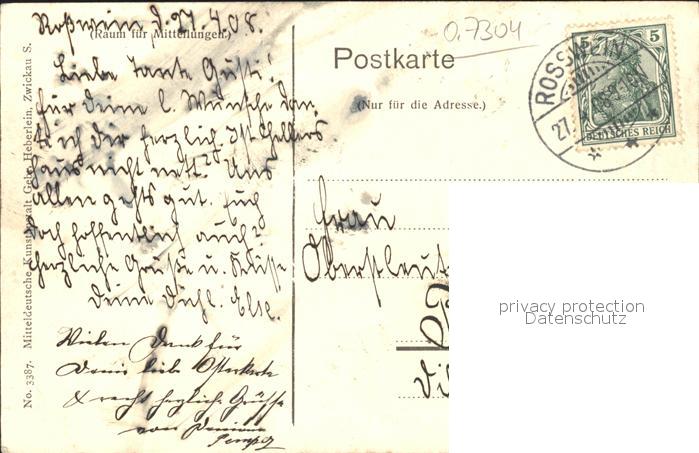 Roßwein, d. 27.4.08.
(Raum für Mitteilungen.)
Liebe Tante Gusti!
für deine l. Wünsche dan-
ke ich dir herzlich. Ist Chellers
Haus nicht nett? Uns
allen gehts gut. Euch
doch hoffentlich auch?
Herzliche Grüße u. Küsse
Deine Else.
Vielen Dank für
Deine liebe Osterkarte
& recht herzliche Grüsse
von
No. 3387. Mitteldeutsche Kunstanstalt Gebr. Heberlein, Zwickau S.
0.7304
Postkarte
(Nur für die Adresse.)
ROSSWEIN
27.4.08
5 5
DEUTSCHES REICH
Frau
Oberstleut
privacy protection
Datenschutz